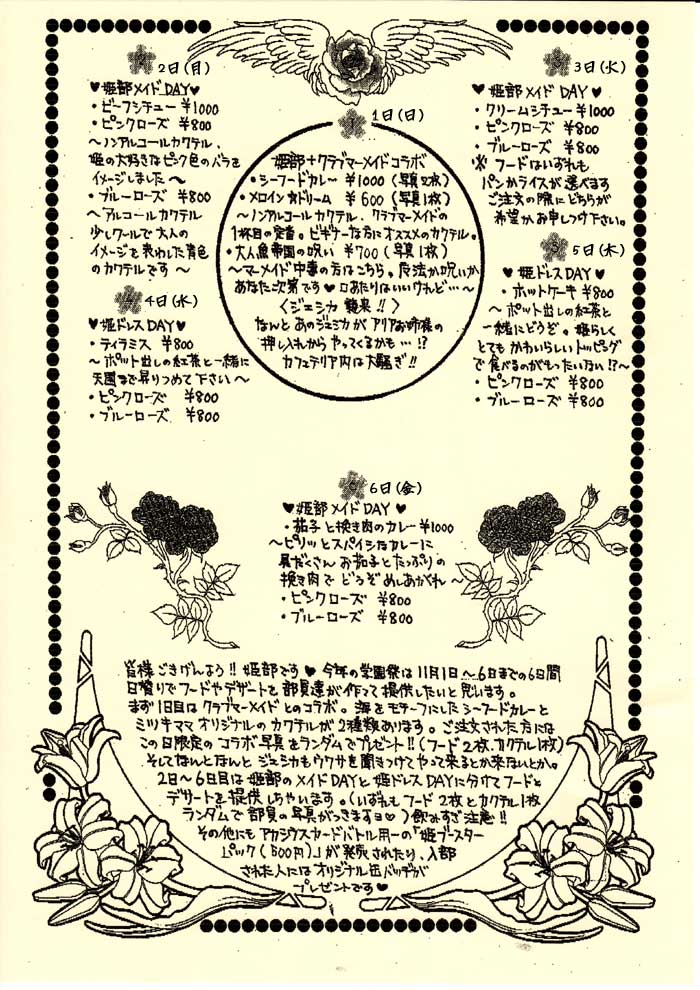 1日(日)
姫部+クラブマーメイドコラボ
・シーフードカレー ¥1000(写真2枚)
・メロインカドリーム ¥600(写真1枚)
〜ノンアルコールカクテル、クラブマーメイドの
1杯目の定番。ビギナーな方にオススメのカクテル。
・大人魚帝国の呪い ¥700(写真1枚)
〜マーメイド中毒の方はこちら。魔法か呪いか
あなた次第です♥口あたりはいいけれど…〜
〈ジェシカ襲来!!〉
なんとあのジェシカがアリアお姉様の
押し入れからやってくるかも…!?
カフェテリア内は大騒ぎ!!
2日(月)
♥姫部メイドDAY♥
・ビーフシチュー ¥1000
・ピンクローズ ¥800
〜ノンアルコールカクテル、
姫の大好きなピンク色のバラを
イメージしました〜
・ブルーローズ ¥800
〜アルコールカクテル
少しクールで大人の
イメージを表わした青色
のカクテルです〜
3日(火)
♥姫部メイドDAY♥
・クリームシチュー ¥1000
・ピンクローズ ¥800
・ブルーローズ ¥800
※フードはいずれも
パンかライスが選べます
ご注文の際にどちらが
希望かお申しつけ下さい。
4日(水)
♥姫ドレスDAY♥
・ティラミス ¥800
〜ポット出しの紅茶と一緒に
天国まで昇りつめて下さい〜
・ピンクローズ ¥800
・ブルーローズ ¥800
5日(木)
♥姫ドレスDAY♥
・ホットケーキ ¥800
〜ポット出しの紅茶と
一緒にどうぞ。姫らしく
とてもかわいらしいトッピング
で食べるのがもったいない!?〜
・ピンクローズ ¥800
・ブルーローズ ¥800
6日(金)
♥姫部メイドDAY♥
・茄子と挽き肉のカレー ¥1000
〜ピリッとスパイシなカレーに
具だくさんお茄子とたっぷりの
挽き肉でどうぞめしあがれ〜
・ピンクローズ ¥800
・ブルーローズ ¥800
皆様ごきげんよう!!姫部です♥今年の学園祭は11月1日〜6日までの6日間
日替りでフードやデザートを部員達が作って提供したいと思います。
まず1日目はクラブマーメイドとのコラボ。海をモチーフにしたシーフードカレーと
ミツキママオリジナルのカクテルが2種類あります。ご注文された方には
この日限定のコラボ写真をランダムでプレゼント!!(フード2枚、カクテル1枚)
そしてなんとなんとジェシカもウワサを聞きつけてやって来るとか来ないとか。
2日〜6日目は姫部のメイドDAYと姫ドレスDAYに分けてフードと
デザートを提供しちゃいます。(いずれもフード2枚とカクテル1枚
ランダムで部員の写真がつきますヨ♥)飲みすぎ注意!!
その他にもアカシウスカードバトル用の「姫ブースター
パック(500円)」が発売されたり、入部
された人にはオリジナル缶バッヂが
プレゼントです♥